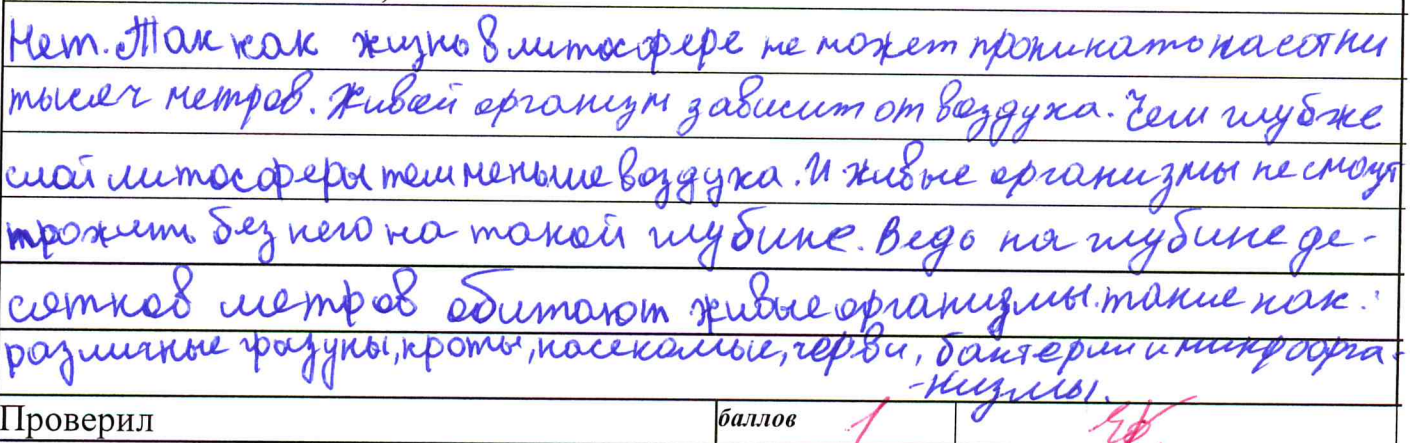 Нет. Так как жизнь в литосфере не может проникать на сотни
тысяч метров. Живой организм зависит от воздуха. Чем глубже
слой литосферы тем меньше воздуха. И живые организмы не смогут
прожить без него на такой глубине. Ведь на глубине де-
сятков метров обитают живые организмы. такие как:
различные грызуны, кроты, насекомые, черви, бактерии и микроорга-
-низмы.
Проверил баллов 1